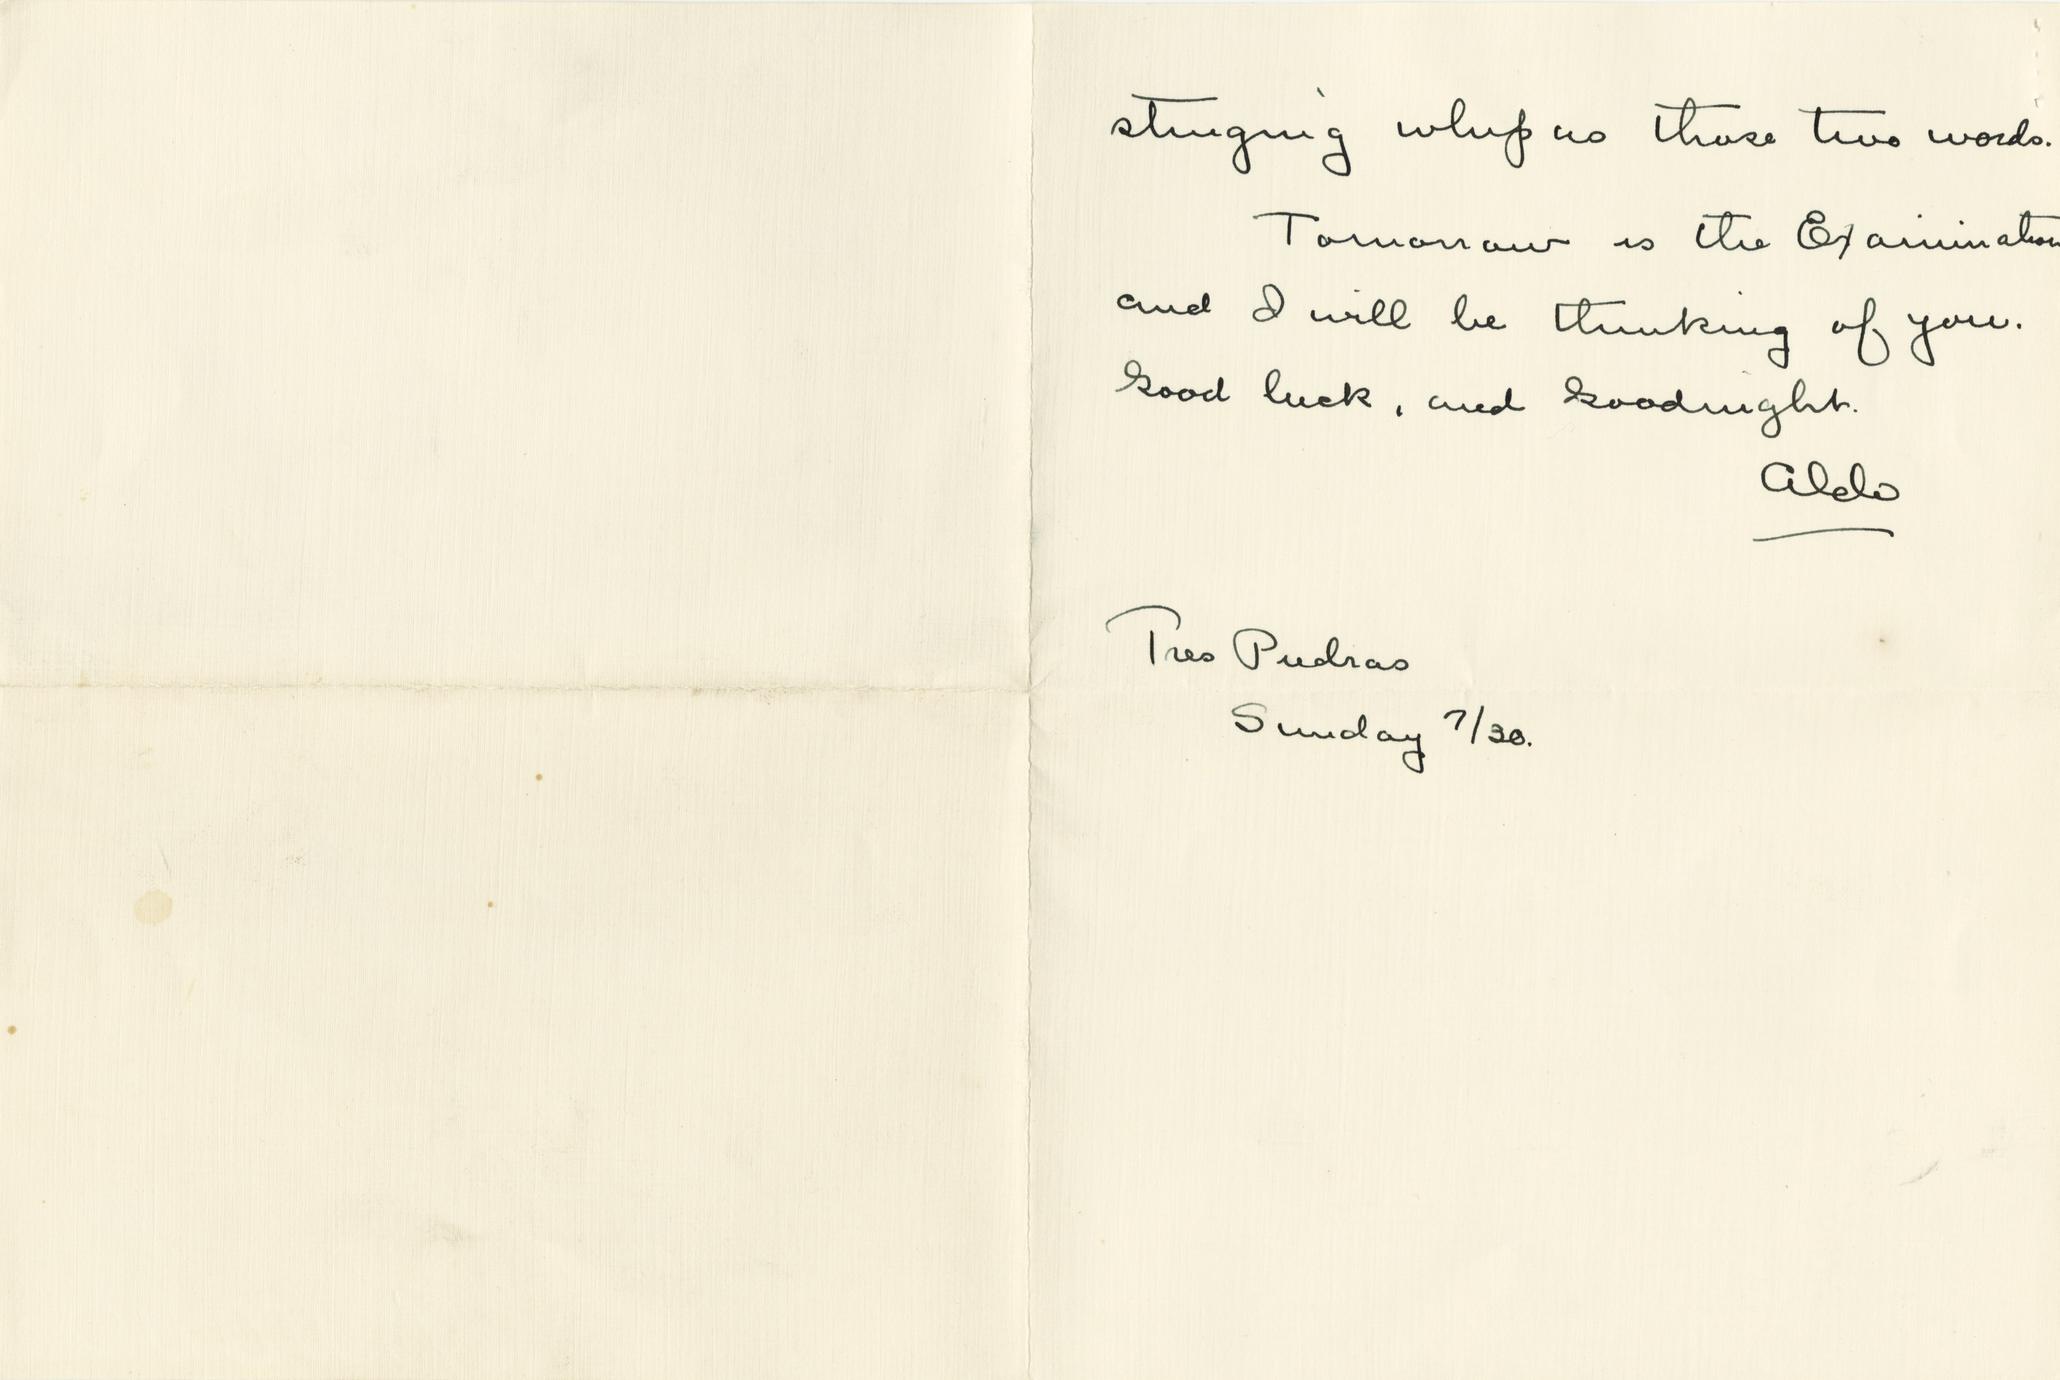 stinging whip as those two words.
Tomorrow is the Examination
and I will be thinking of you.
Good luck, and Goodnight.
Aldo
Tres Piedras
Sunday 7/30.